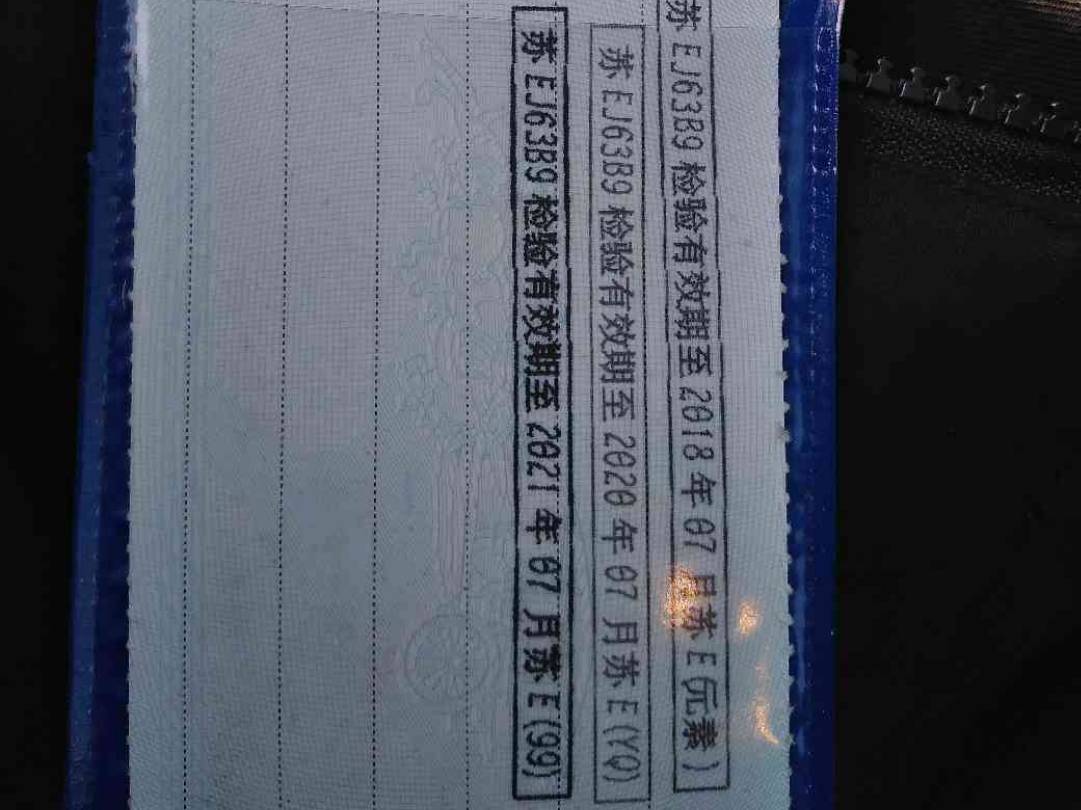 苏EJ63B9检验有效期至2018年07月苏E(元素)
苏EJ63B9检验有效期至2020年07月苏E(YQ)
苏EJ63B9检验有效期至2021年07月苏E(99)